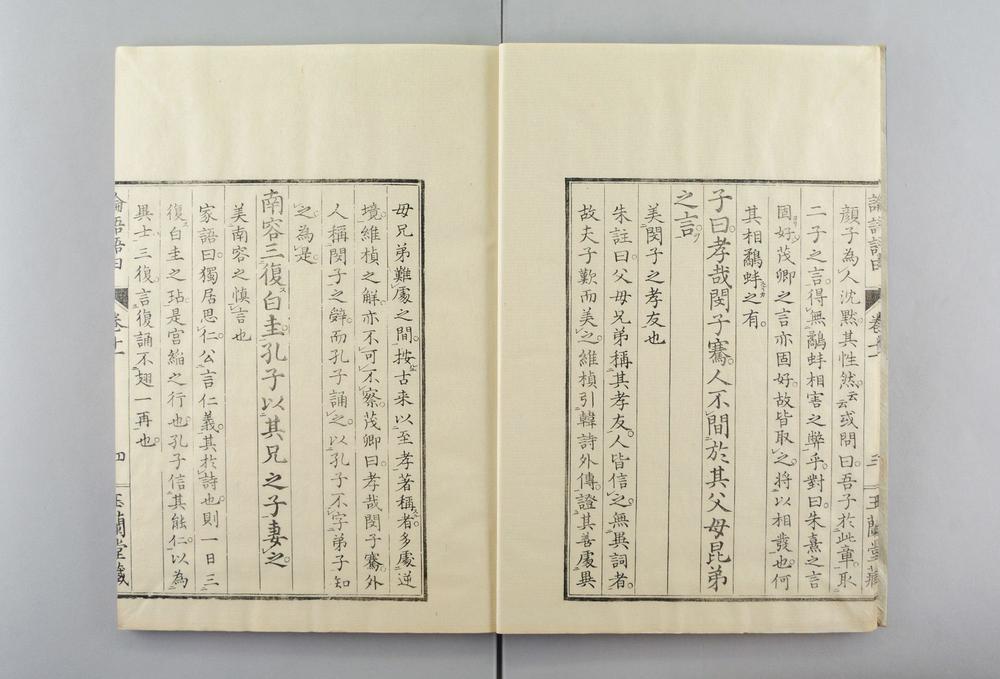 論語語由
卷十一
三
玉蘭堂藏
顏子為人沈黙其性然云云或問曰吾子於此章取
二子之言得無鷸蚌相害之弊乎對曰朱熹之言
固好茂卿之言亦固好故皆取之將以相發也何
其相鷸蚌之有
子曰孝哉閔子騫人不間於其父母昆弟
之言
美閔子之孝友也
朱註曰父母兄弟稱其孝友人皆信之無異詞者
故夫子歎而美之維楨引韓詩外傳證其善處異
母兄弟難處之間按古來以至孝著稱者多處逆
境維楨之解亦不可不察茂卿曰孝哉閔子騫外
人稱閔子之辭而孔子誦之以孔子不字弟子知
之為是
南容三復白圭孔子以其兄之子妻之
美南容之慎言也
家語曰獨居思仁公言仁義其於詩也則一日三
復白圭之玷是宮縚之行也孔子信其能仁以為
異士三復言復誦不翅一再也
論語語由
卷十一
四
玉蘭堂藏